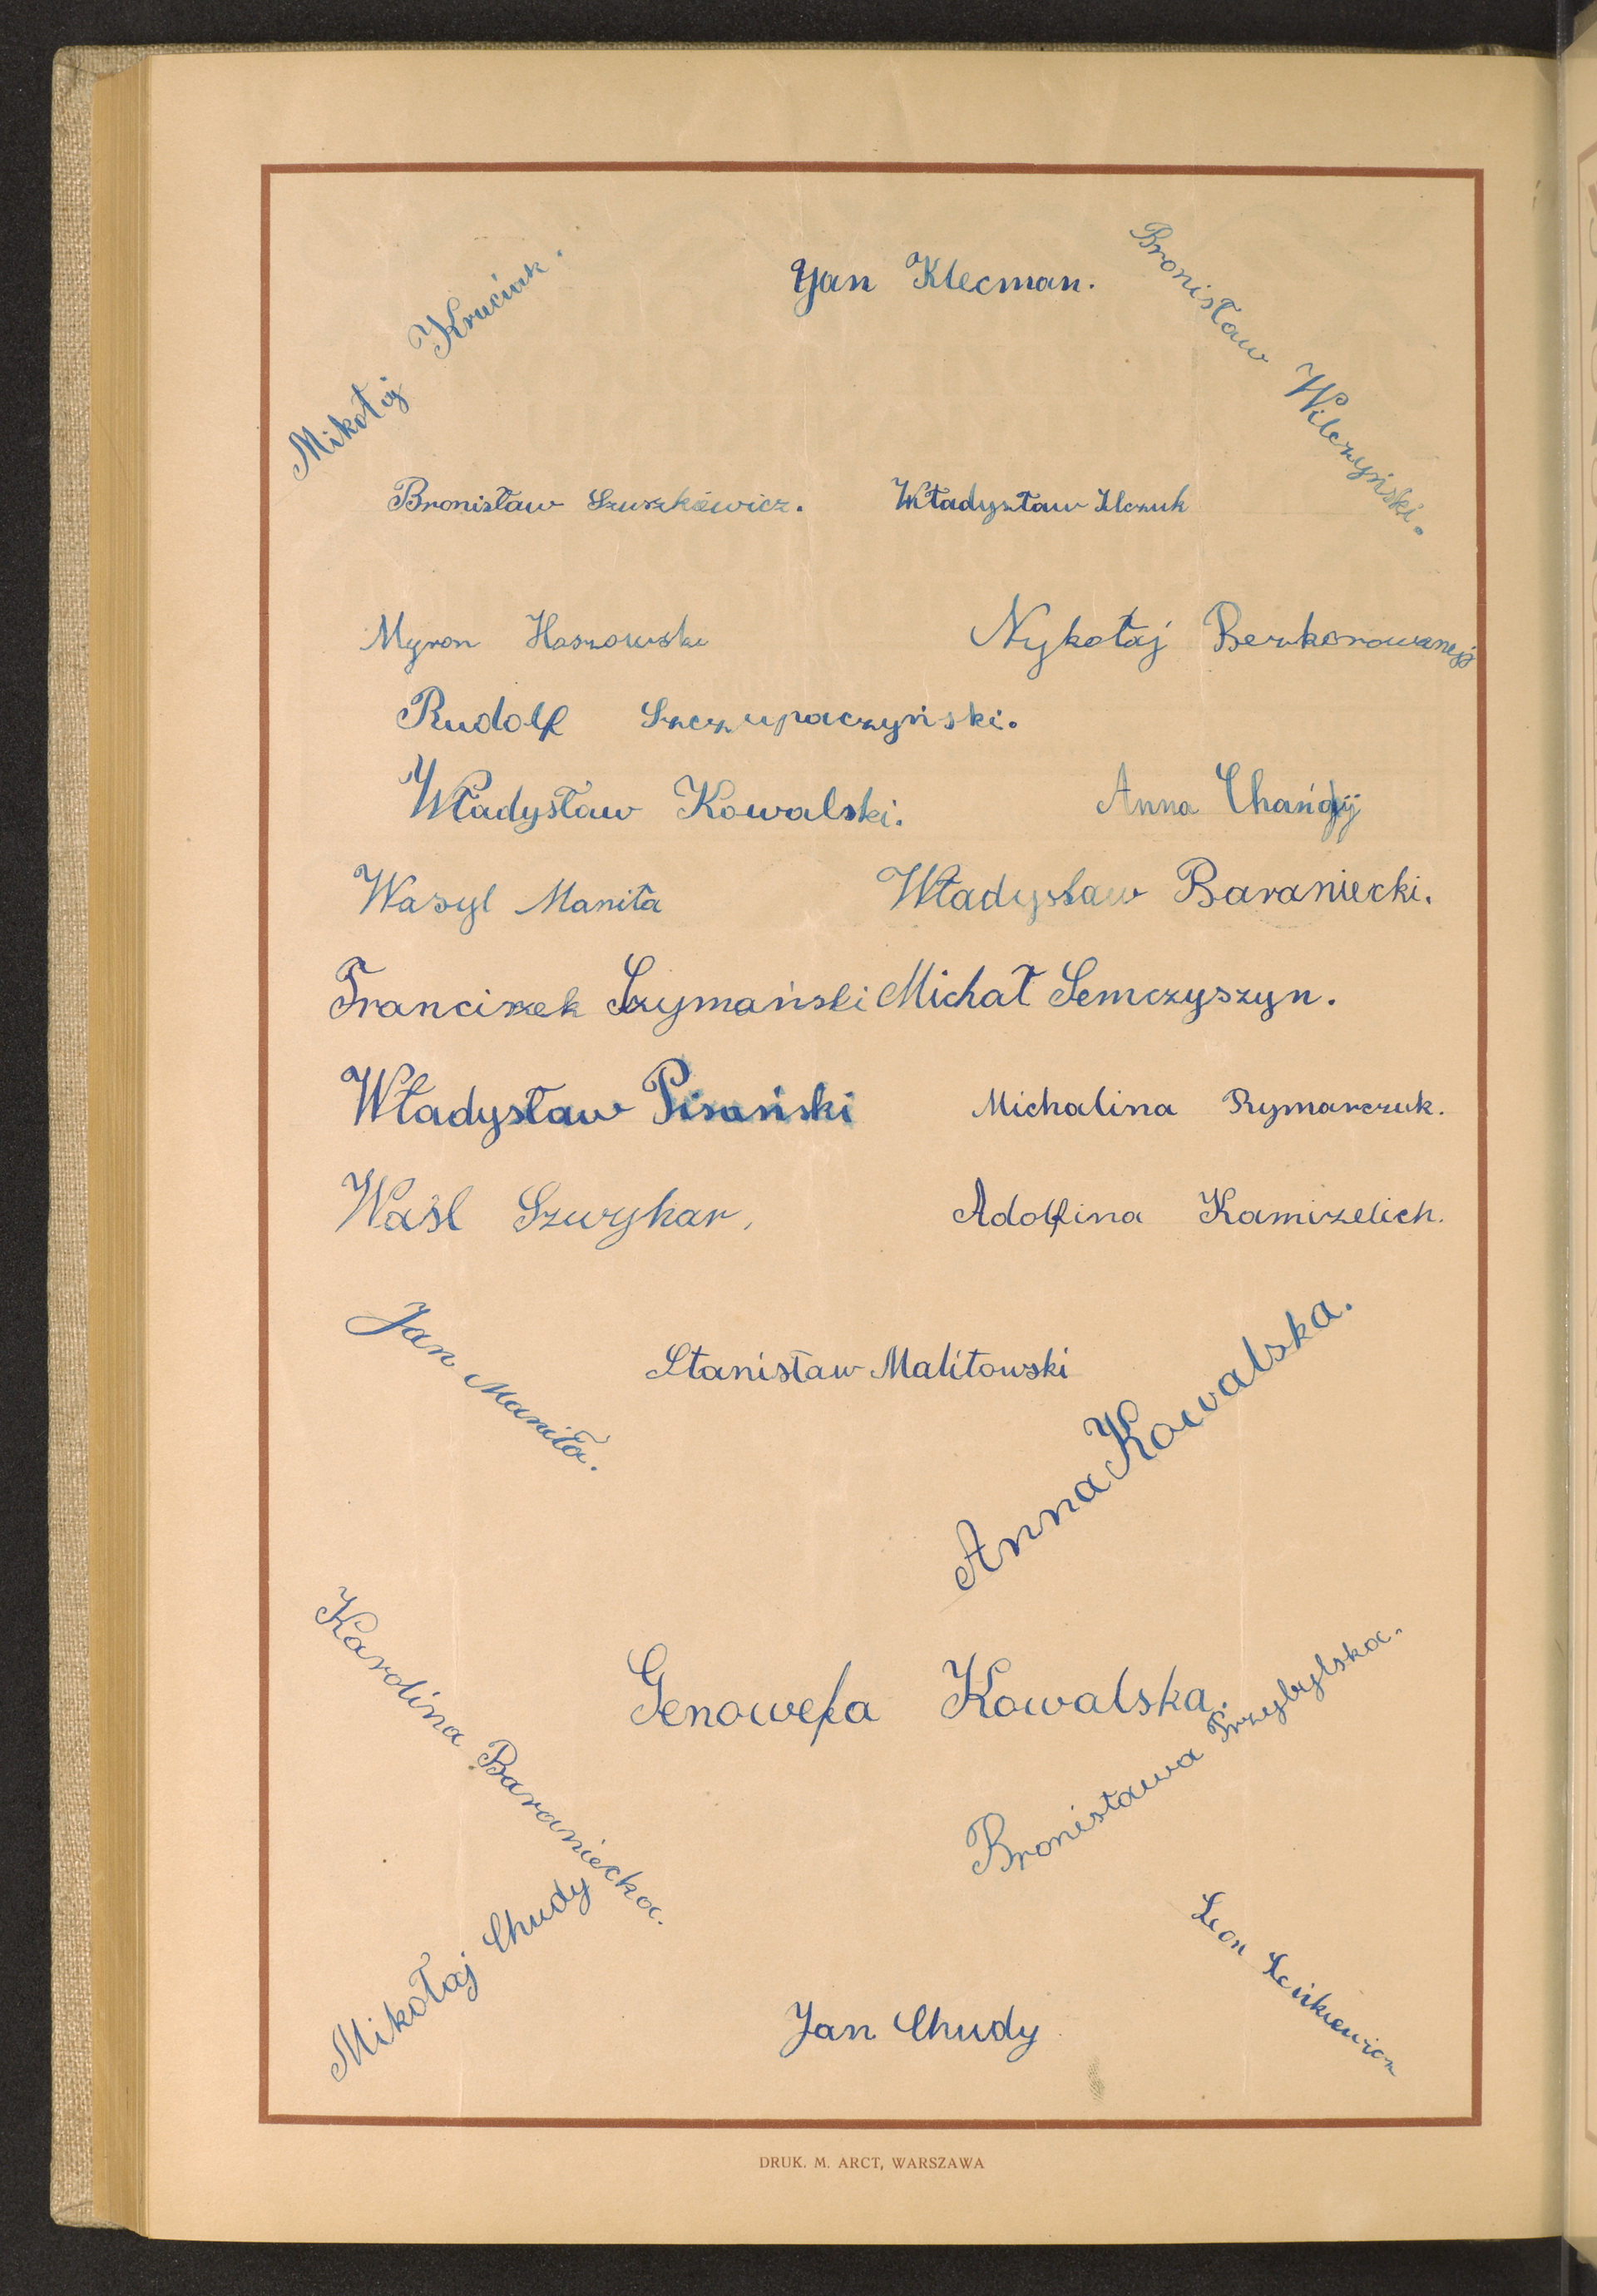 Mikołaj Kruciak.
Jan Klecman.
Bronisław Wilczyński.
Bronisław Szuszkiewicz.
Władysław Ilczuk
Myron Haszowski
Nykołaj Berkorowanyj
Rudolf Szczupaczyński.
Władysław Kowalski.
Anna
Wasyl Maniła
Władysław Baraniecki.
Franciszek Szymański
Michał Semczyszyn.
Władysław Pisański
Michalina Rymarczuk.
Waśl Szwykar.
Adolfina Kamizelich.
Jan Maniła.
Stanisław Malitowski
Anna Kowalska.
Karolina Baraniecka.
Genowefa Kowalska.
Bronisława Przybylska.
Mikołaj Chudy
Jan Chudy
Leon Leńkiewicz
DRUK. M. ARCT, WARSZAWA